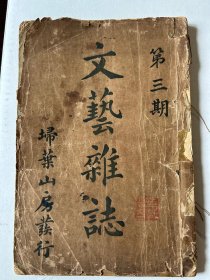 第三期
文藝雜誌
埽葉山房發行